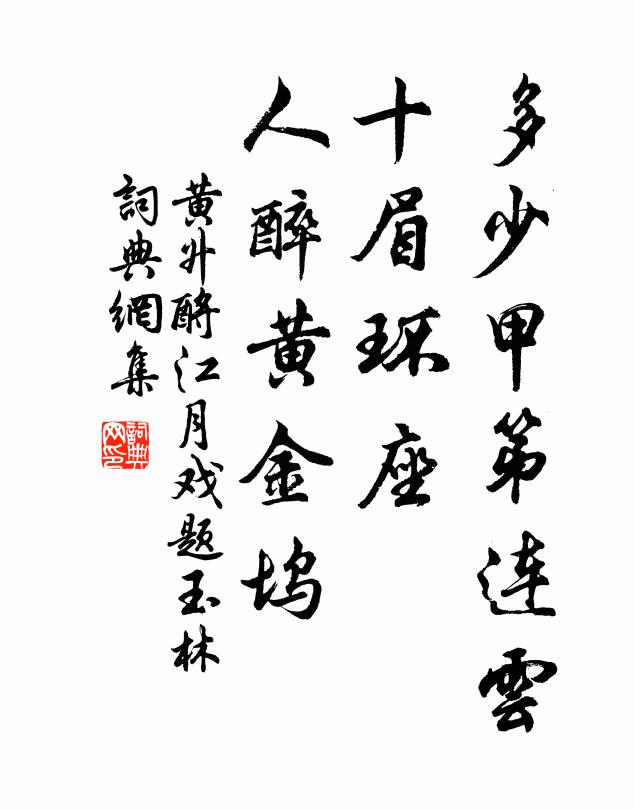 多少甲第連雲
十眉环座
人醉黄金坞
黄升酹江月戏题玉林
詞典網集
詞典网印